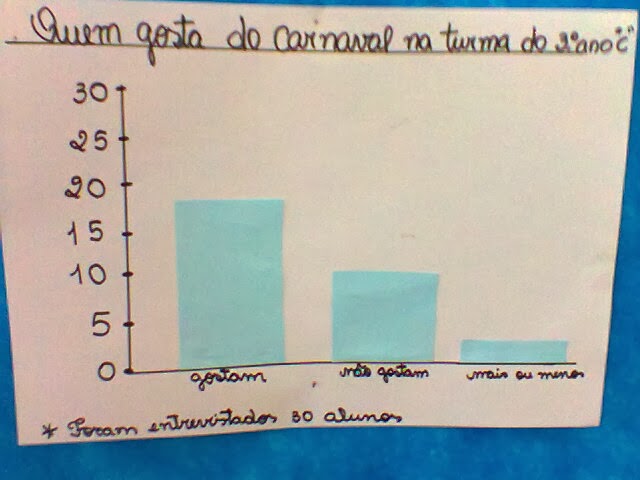 Quem gosta do Carnaval na turma do 2º ano "C"
30
25
20
15
10
5
0
gostam não gostam mais ou menos
* Foram entrevistados 30 alunos